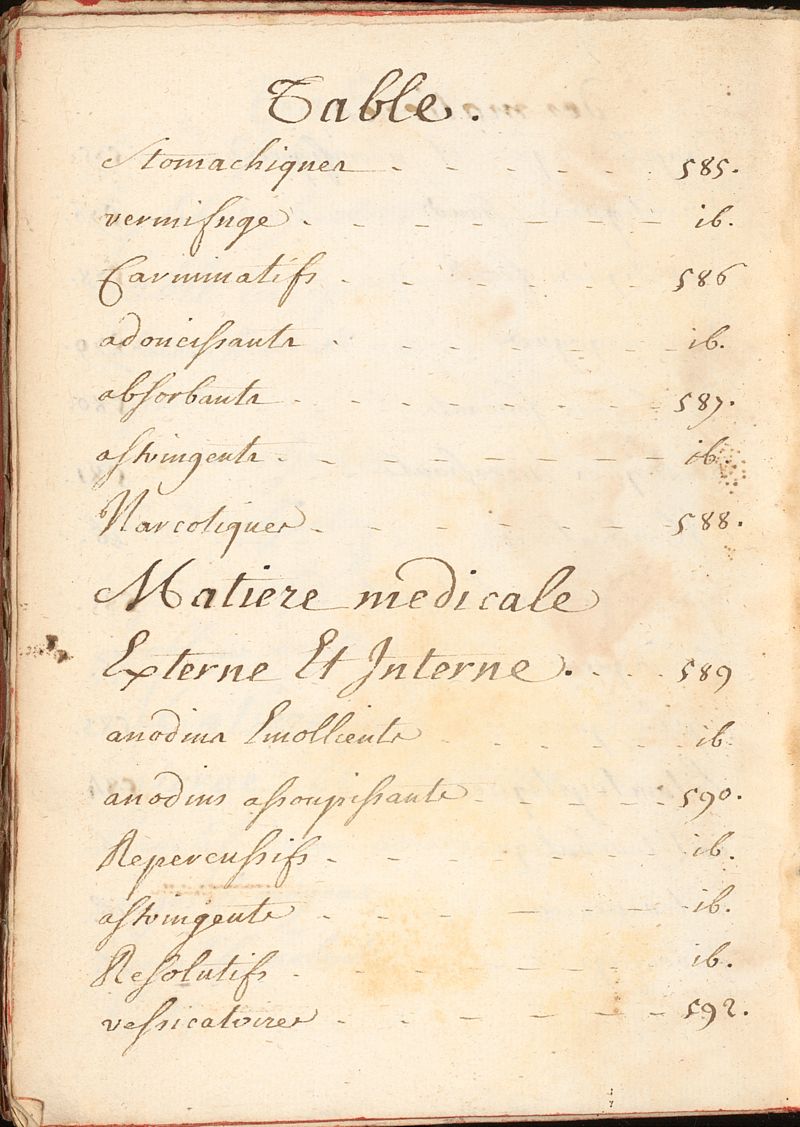 Table.
Stomachiques - - - - - 585.
vermifuge - - - - - - ib.
Carminatifs - - - - - 586
adoucissants - - - - - ib.
absorbants - - - - - - 587.
astringents - - - - - - ib.
Narcotiques - - - - - 588.
Matiere medicale
Externe Et Interne. - - 589
anodins Emollients - - - - ib
anodins assoupissants - - - 590.
Repercussifs - - - - - ib.
astringents - - - - - ib.
Resolutifs - - - - - - ib.
vessicatoires - - - - - 592.